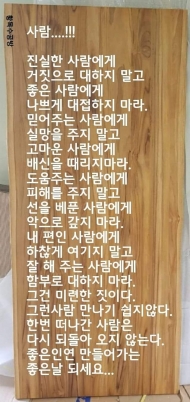 황목수공방
사람....!!!
진실한 사람에게
거짓으로 대하지 말고
좋은 사람에게
나쁘게 대접하지 마라.
믿어주는 사람에게
실망을 주지 말고
고마운 사람에게
배신을 때리지마라.
도움주는 사람에게
피해를 주지 말고
선을 베푼 사람에게
악으로 갚지 마라.
내 편인 사람에게
하찮게 여기지 말고
잘 해 주는 사람에게
함부로 대하지 마라.
그건 미련한 짓이다.
그런사람 만나기 쉽지않다.
한번 떠나간 사람은
다시 되돌아 오지 않는다.
좋은인연 만들어가는
좋은날 되세요...